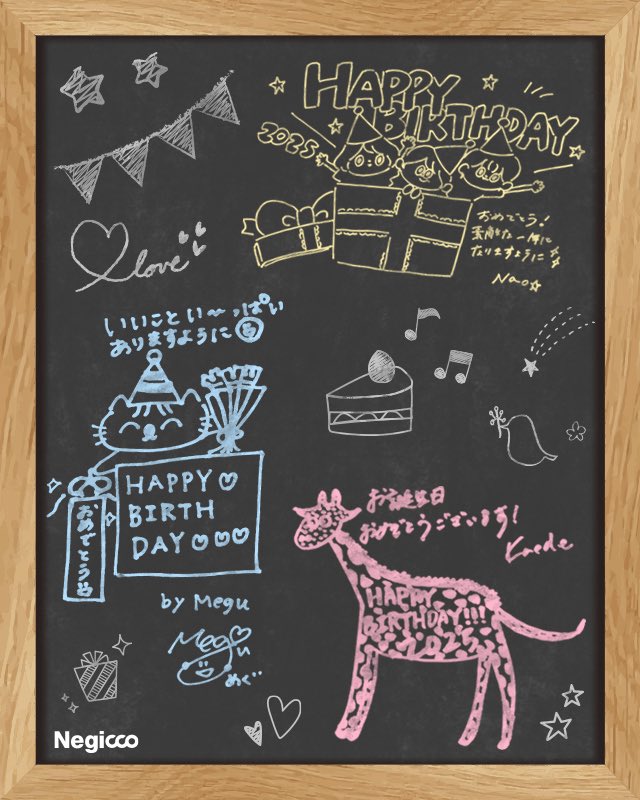 HAPPY
BIRTHDAY
2025
おめでとう!
素敵な一年に
なりますように
Nao☆
love
いいことい〜っぱい
ありますように
HAPPY♡
BIRTH
DAY♡♡♡
おめでとう
by Megu
Meg
めぐ
お誕生日
おめでとうございます!
Kaede
HAPPY
BIRTHDAY!!!
2025
Negicco